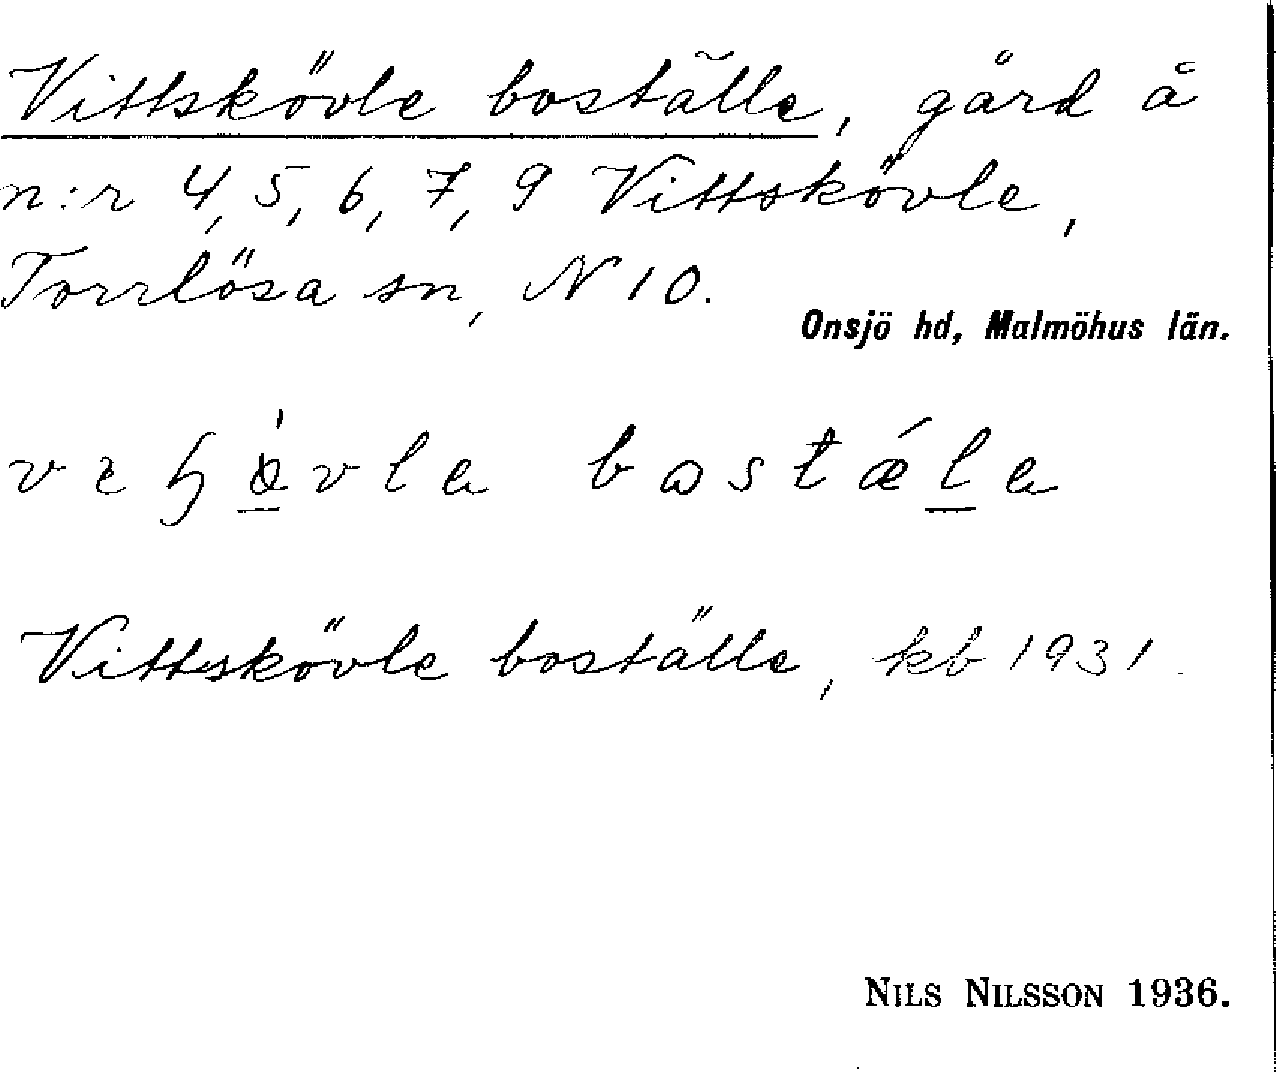 Vittskövle boställe, gård å
n:r 4, 5, 6, 7, 9 Vittskövle,
Torrlösa sn, N 10.
Onsjö hd, Malmöhus län.
Vittskövle boställe, kb 1931.
NILS NILSSON 1936.